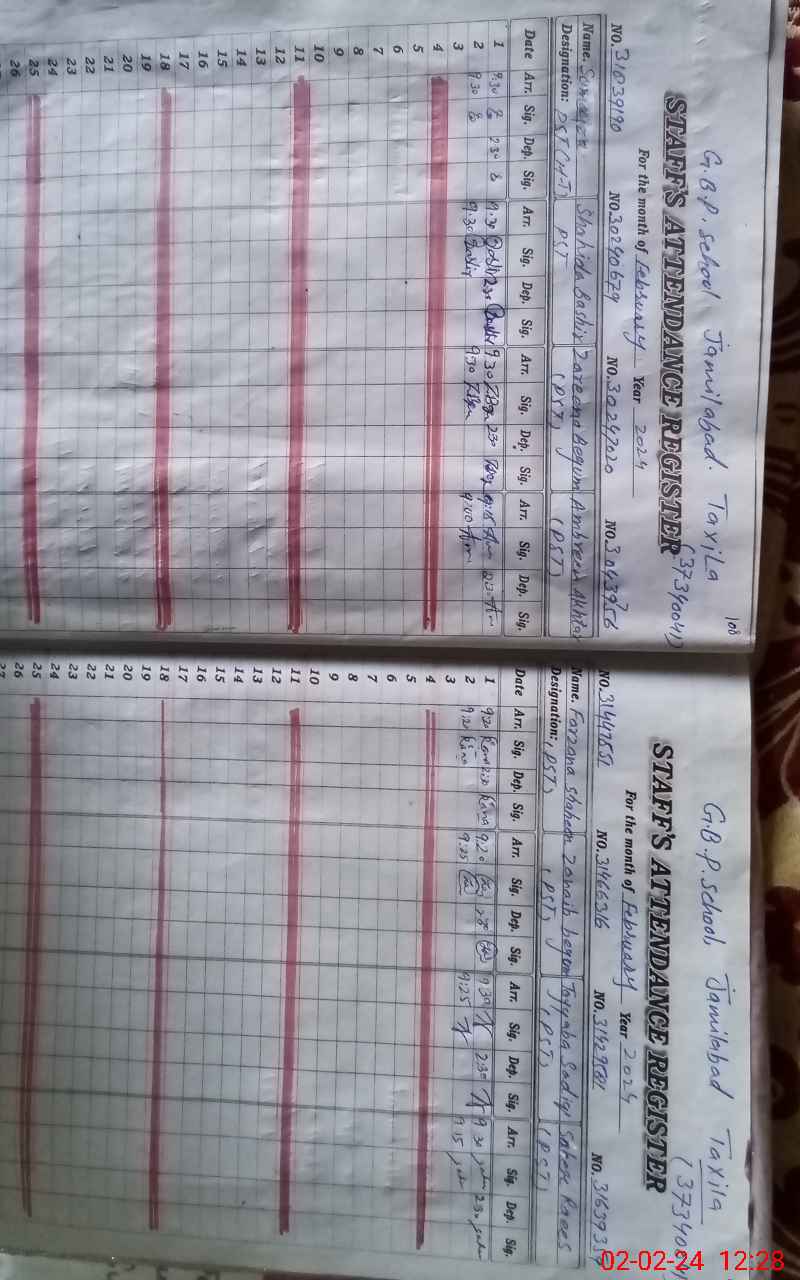 108
G.B.P. School Jamilabad. Taxila
(37340041)
STAFF'S ATTENDANCE REGISTER
For the month of February Year 2024
NO. 31039190 NO. 30240679 NO. 30247020 NO. 3043956
Name. Shahida Bashir Zareena Begum Ambreen Akhtar
Designation: PST (H-T) PST (PST) (PST)
Date Arr. Sig. Dep. Sig. Arr. Sig. Dep. Sig. Arr. Sig. Dep. Sig. Arr. Sig. Dep. Sig.
1 9.30 230 9.30 230 930 230 9:15 230
2 9.30 9.30 930 9:00
3
4
5
6
7
8
9
10
11
12
13
14
15
16
17
18
19
20
21
22
23
24
25
26
G.B.P. School Jamilabad Taxila
STAFF'S ATTENDANCE REGISTER
For the month of February Year 2024
NO. 31447551 NO. 31466316 NO. NO.
Name. Farzana Shaheen Zanaib begum Tayyaba Sadiqi Raees
Designation: (PST) (PST) (PST) (PST)
Date Arr. Sig. Dep. Sig. Arr. Sig. Dep. Sig. Arr. Sig. Dep. Sig. Arr. Sig. Dep. Sig.
1 920 9.20 930 230 9 30 230
2 9.20 9:25 9:25 9 15
3
4
5
6
7
8
9
10
11
12
13
14
15
16
17
18
19
20
21
22
23
24
25
26
27
02-02-24 12:28